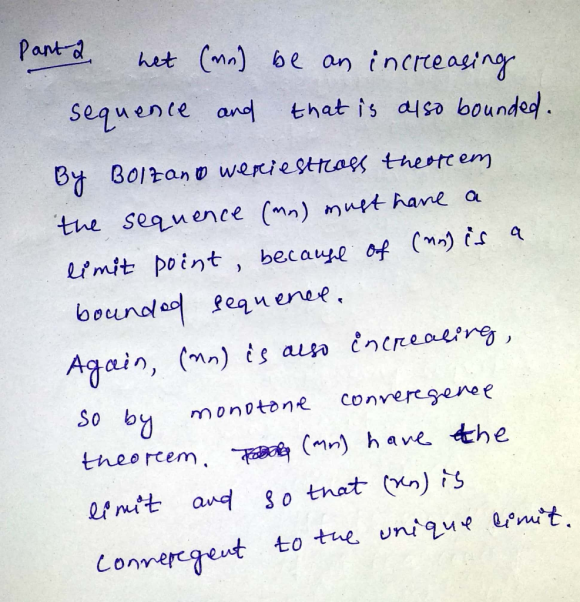 Part-2 Let (xn) be an increasing
sequence and that is also bounded.
By Bolzano weriestrass theorem
the sequence (xn) must have a
limit point, because of (xn) is a
bounded sequence.
Again, (xn) is also increasing,
so by monotone convergence
theorem. (xn) have the
limit and so that (xn) is
convergent to the unique limit.